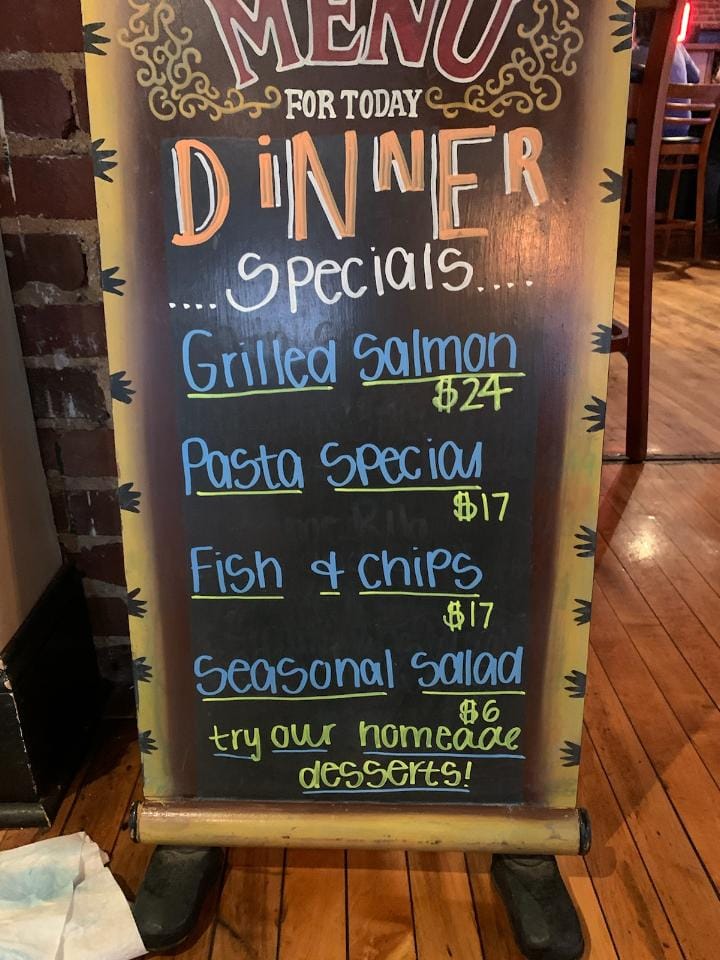 MENU
FOR TODAY
DiNNER
....Specials....
Grilled Salmon
$24
Pasta Special
$17
Fish & chips
$17
Seasonal Salad
$6
try our homeade
desserts!